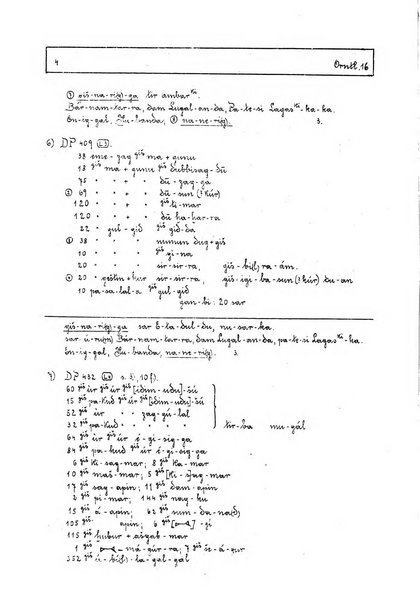 4 Ornt. 16
① giš-na-ri(g)-ga tir ambar ki.
Bár-nam-tar-ra, dam Lugal-an-da, Pa-te-si Lagas ki-ka-ka.
En-ig-gal, Nu-banda, ② na-ne-ri(g). 3.
6) DP 409
38 eme-zag giš ma + gunu
18 giš ma + gunu dubbisag-dū
75 " " " dū-zag-ga
③ 69 " " " dū-sun (: kúr)
120 " " " giš ti-mar
120 " " " dū ha-har-ra
22 " gul-gid giš gid-da
④ 38 " " numun dug+giš
10 " " giš gi-na
20 " " sir-sir-ra, giš-bi(l)ra-ám.
⑤ 20 " geštin+kur sir-sir-ra, giš-igi-ba-sun (: kúr) tu-an
10 pa-sal-la giš gul-gid
gan-bi: 20 sar
giš-na-ri(g)-ga sar E-ta-dul-du, nu-sar-ka.
Bár-nam-tar-ra, dam Lugal-an-da, pa-te-si Lagas ki-ka-ka
En-ig-gal, Nu-banda, na-ne-ri(g). 3.
7) DP 432
60 giš ùr giš [idim-udu]-šú
15 giš pa-kud giš [idim-udu]-šú
52 giš ùr " zag-gú-lal
32 giš pa-kud " " tir-ba mu-gál
64 giš ùr ùr é-gi-sig-ga
84 giš pa-kud ùr é-gi-sig-ga
6 giš ki-sag-mar; 8 giš ka-mar
10 giš maš-mar; 5 giš [ki-s]ag-mar
17 giš sag-apin; 11 giš dam-apin
2 giš pi-mar; 144 giš nag-ku
15 giš á-apin; 62 giš sum-da-na(d)
105 giš- apin; 6 giš -gi
115 giš hubur + ašgab-mar
1 giš -má-gúr-ra; 7 giš
352 giš ù-bi(l)-la-gal-gal